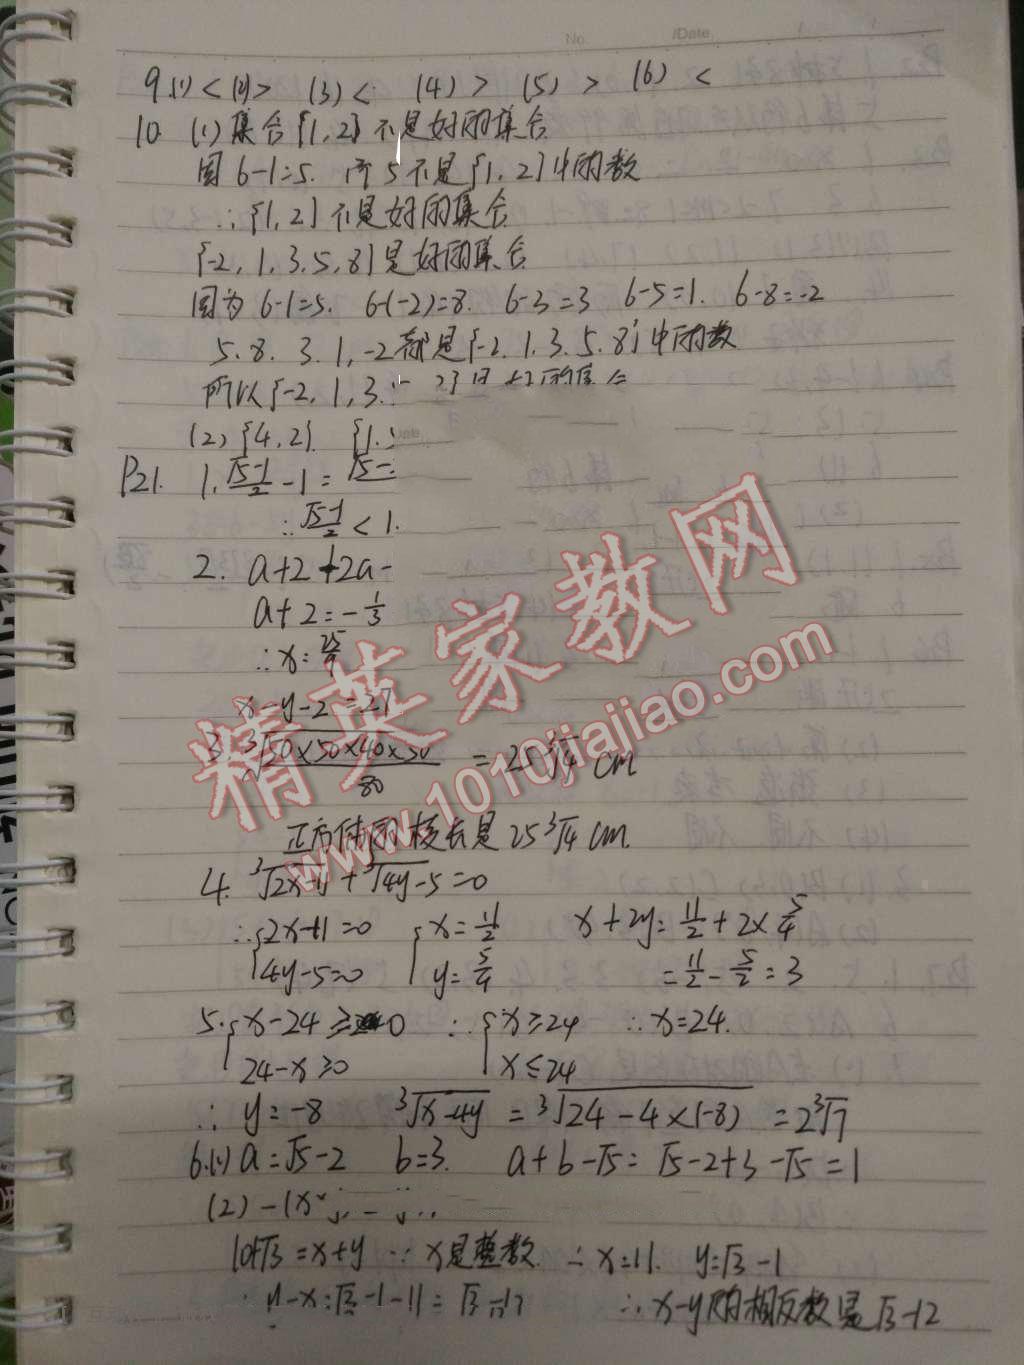 No. /Date.
9.(1) < (2) > (3) < (4) > (5) > (6) <
10. (1) 集合{1,2}不是好的集合
因 6-1=5. 5不是{1,2}中的数
∴{1,2}不是好的集合
{-2,1,3,5,8}是好的集合
因为 6-1=5. 6-(-2)=8. 6-3=3 6-5=1. 6-8=-2
5.8.3.1,-2都是{-2.1.3.5.8}中的数
所以{-2,1,3.
(2){4,2}. {1.
P21. 1. (√5-1)/2 - 1 =
∴ (√5-1)/2 < 1.
2. a+2+2a-
a+2=-1/3
∴x=25/9
x-y-2=27
3. ∛(50×50×40×50/80) = 25∛4 cm
正方体的棱长是25∛4 cm.
4. ∛(2x-11)+∛(4y-5)=0
∴{2x-11=0 {x=11/2 x+2y=11/2+2×5/4
4y-5=0 y=5/4 =11/2-5/2=3
5.{x-24≥0 ∴{x≥24 ∴x=24.
24-x≥0 x≤24
∴y=-8 ∛(x-4y) = ∛(24-4×(-8)) = 2∛7
6.(1) a=√5-2 b=3. a+b-√5=√5-2+3-√5=1
(2)
10+√3=x+y ∵x是整数 ∴x=11. y=√3-1
y-x=√3-1-11=√3-12 ∴x-y的相反数是√3-12
精英家教网
www.1010jiajiao.com